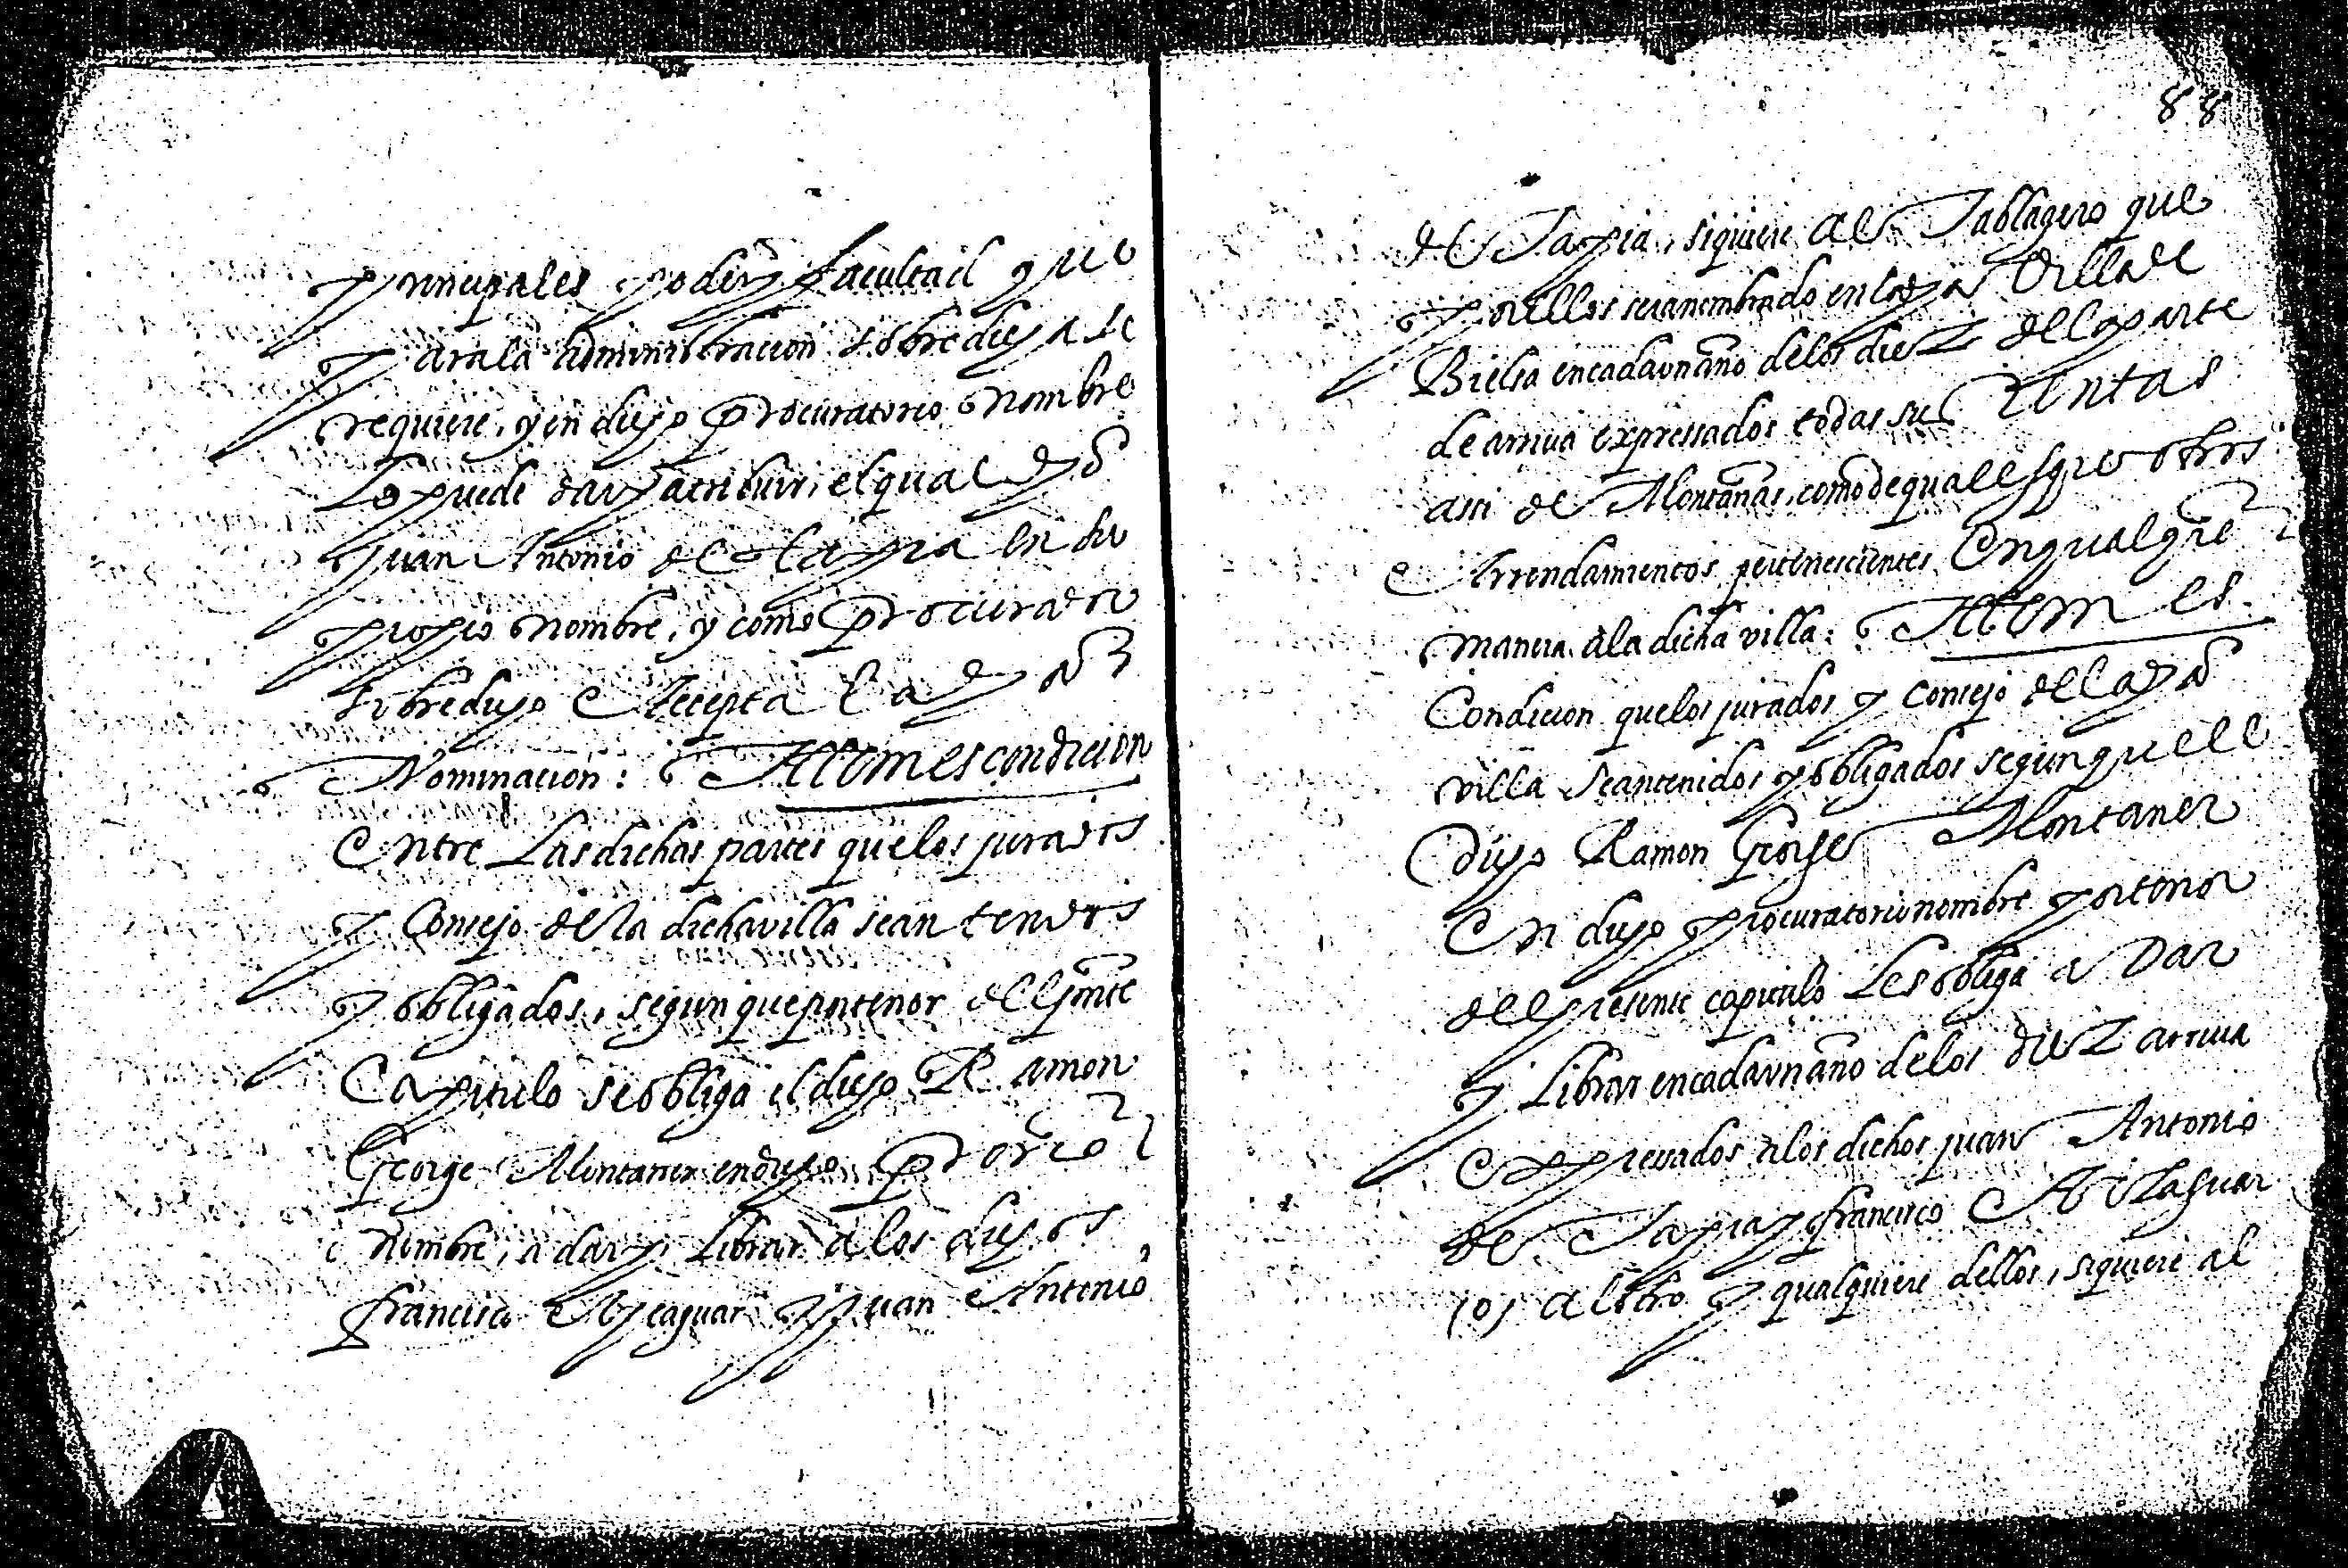 principales poder y facultad que
para la administracion sobredicha se
requiere, y en dicho procuratorio nombre
Le puede dar y atribuir, el qual dho
Juan Antonio de tapia en su
propio nombre, y como procurador
sobredicho Accepta la dha
Nominacion: Ittem es condicion
Entre Las dichas partes que los jurados
y Consejo de la dicha villa sean tenidos
y obligados, segun que por tenor del pnte
Capitulo se obliga el dicho Ramon
George Montaner en dicho procrio
nombre, a dar y Librar a los dichos
francisco y Juan Antonio
88
de Tapia, siquiere al Tablagero que
por ellos sera nombrado en la dha Villa de
Bielsa en cada un año de los diez de la parte
de arriva expressados todas sus Rentas
assi de Montañas, como de qualesquiere otros
Arrendamientos pertenescientes En qualqre
manera a la dicha villa: Ittem es
Condicion que los jurados y Consejo de la dha
villa sean tenidos y obligados segun que el
dicho Ramon George Montaner
En dicho procuratorio nombre por tenor
del presente capitulo Les obliga a Dar
y Librar en cada un año de los diez arriva
Expressados a los dichos Juan Antonio
de Tapia y francisco
(o) al otro y qualquiere dellos, siquiere al